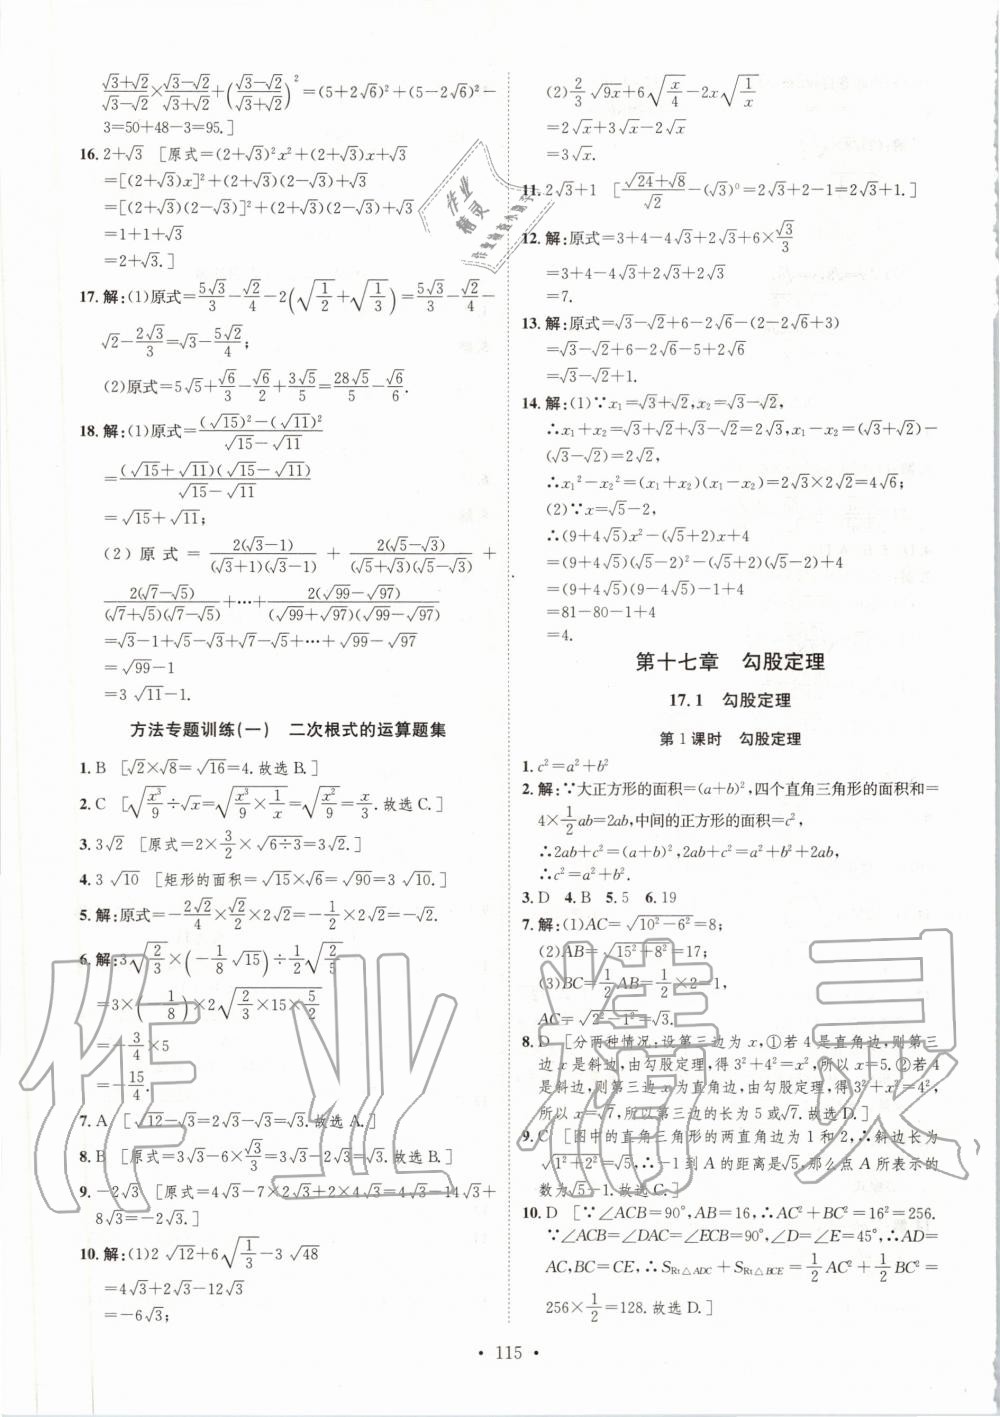 (√3+√2)/(√3-√2)×(√3-√2)/(√3+√2)+((√3-√2)/(√3+√2))²=(5+2√6)²+(5-2√6)²-
3=50+48-3=95.]
16. 2+√3 [原式=(2+√3)²x²+(2+√3)x+√3
=[(2+√3)x]²+(2+√3)(2-√3)+√3
=[(2+√3)(2-√3)]²+(2+√3)(2-√3)+√3
=1+1+√3
=2+√3.]
17. 解:(1)原式=5√3/3-√2/4-2(√(1/2)+√(1/3))=5√3/3-√2/4-
√2-2√3/3=√3-5√2/4;
(2)原式=5√5+√6/3-√6/2+3√5/5=28√5/5-√6/6.
18. 解:(1)原式=((√15)²-(√11)²)/(√15-√11)
=(√15+√11)(√15-√11)/(√15-√11)
=√15+√11;
(2)原式=2(√3-1)/((√3+1)(√3-1))+2(√5-√3)/((√5+√3)(√5-√3))+
2(√7-√5)/((√7+√5)(√7-√5))+···+2(√99-√97)/((√99+√97)(√99-√97))
=√3-1+√5-√3+√7-√5+···+√99-√97
=√99-1
=3√11-1.
方法专题训练(一) 二次根式的运算题集
1. B [√2×√8=√16=4.故选B.]
2. C [√(x³/9)÷√x=√(x³/9×1/x)=√(x²/9)=x/3.故选C.]
3. 3√2 [原式=2×3/2×√(6÷3)=3√2.]
4. 3√10 [矩形的面积=√15×√6=√90=3√10.]
5. 解:原式=-2√2/4×√2/2×2√2=-1/2×2√2=-√2.
6. 解:3√(2/3)×(-1/8√15)÷1/2√(2/5)
=3×(-1/8)×2√(2/3×15×5/2)
=-3/4×5
=-15/4.
7. A [√12-√3=2√3-√3=√3.故选A.]
8. B [原式=3√3-6×√3/3=3√3-2√3=√3.故选B.]
9. -2√3 [原式=4√3-7×2√3+4×2√3=4√3-14√3+
8√3=-2√3.]
10. 解:(1)2√12+6√(1/3)-3√48
=4√3+2√3-12√3
=-6√3;
(2)2/3√9x+6√(x/4)-2x√(1/x)
=2√x+3√x-2√x
=3√x.
11. 2√3+1 [(√24+√8)/√2-(√3)⁰=2√3+2-1=2√3+1.]
12. 解:原式=3+4-4√3+2√3+6×√3/3
=3+4-4√3+2√3+2√3
=7.
13. 解:原式=√3-√2+6-2√6-(2-2√6+3)
=√3-√2+6-2√6-5+2√6
=√3-√2+1.
14. 解:(1)∵x₁=√3+√2,x₂=√3-√2,
∴x₁+x₂=√3+√2+√3-√2=2√3,x₁-x₂=(√3+√2)-
(√3-√2)=2√2,
∴x₁²-x₂²=(x₁+x₂)(x₁-x₂)=2√3×2√2=4√6;
(2)∵x=√5-2,
∴(9+4√5)x²-(√5+2)x+4
=(9+4√5)(√5-2)²-(√5+2)(√5-2)+4
=(9+4√5)(9-4√5)-1+4
=81-80-1+4
=4.
第十七章 勾股定理
17.1 勾股定理
第1课时 勾股定理
1. c²=a²+b²
2. 解:∵大正方形的面积=(a+b)²,四个直角三角形的面积和=
4×1/2ab=2ab,中间的正方形的面积=c²,
∴2ab+c²=(a+b)²,2ab+c²=a²+b²+2ab,
∴c²=a²+b².
3. D 4. B 5. 5 6. 19
7. 解:(1)AC=√(10²-6²)=8;
(2)AB=√(15²+8²)=17;
(3)BC=1/2AB=1/2×2=1,
AC=√(2²-1²)=√3.
8. D [分两种情况:设第三边为x,①若4是直角边,则第三
边x是斜边,由勾股定理,得3²+4²=x²,所以x=5.②若4
是斜边,则第三边x为直角边,由勾股定理,得3²+x²=4²,
所以x=√7,所以第三边的长为5或√7.故选D.]
9. C [图中的直角三角形的两直角边为1和2,∴斜边长为
√(1²+2²)=√5,∴-1到A的距离是√5,那么点A所表示的
数为√5-1.故选C.]
10. D [∵∠ACB=90°,AB=16,∴AC²+BC²=16²=256.
∵∠ACB=∠DAC=∠ECB=90°,∠D=∠E=45°,∴AD=
AC,BC=CE,∴S Rt△ADC+S Rt△BCE=1/2AC²+1/2BC²=
256×1/2=128.故选D.]
• 115 •
作业精灵
作业
精灵